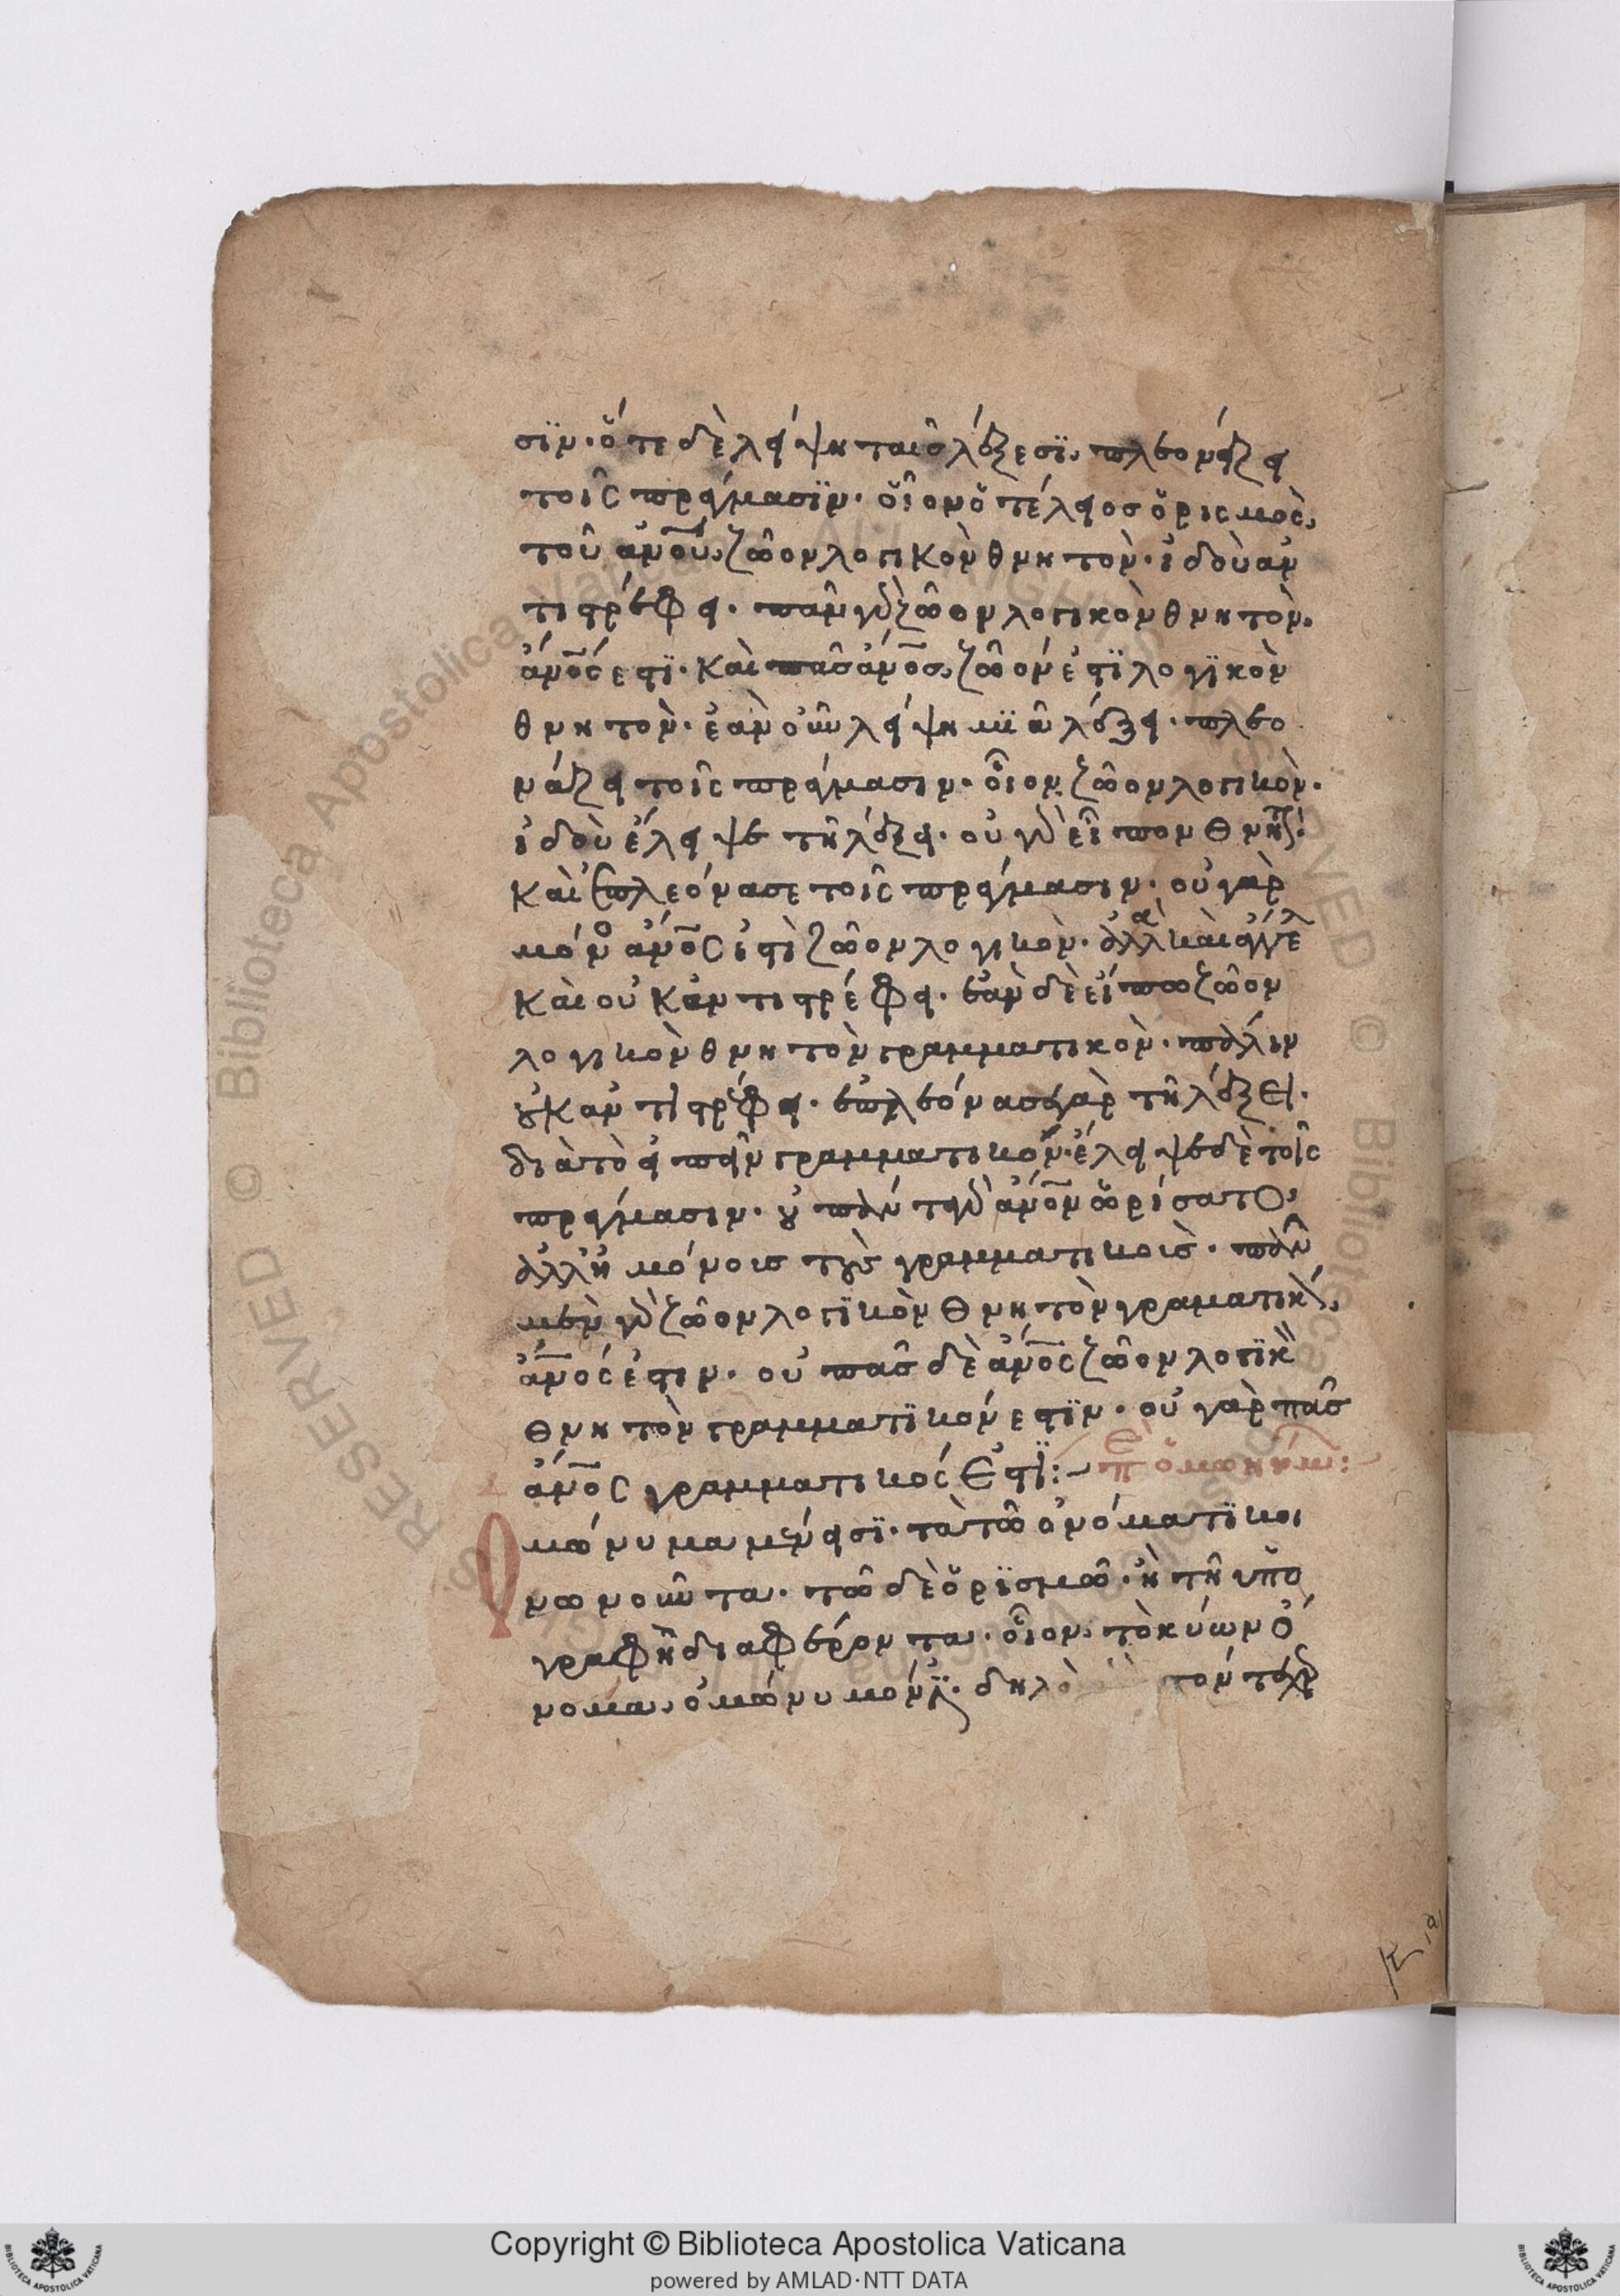 σϊν· ὅτε δὲ λείψη ταῖς λέξεσϊ, πλεονάζει
τοῖς πράγμασϊν· οἷον ὁ τέλειος ὁρισμὸς,
τοῦ ἀνου, ζῶον λογικὸν θνητὸν· ἰδοὺ ἀν
τιστρέφει· πᾶν γὰρ ζῶον λογικὸν θνητὸν·
ἄνος ἐστϊ· καὶ πᾶς ἄνος, ζῶόν ἐστϊ λογϊκὸν
θνητὸν· ἐὰν οὖν λείψη μϊᾶ λέξει· πλεο
νάζει τοῖς πράγμασιν· οἷον ζῶον λογικὸν·
ἰδοὺ ἔλειψε τῆ λέξει· οὐ γὰρ εἶπον θνητὸν·
καὶ ἐπλεόνασε τοῖς πράγμασιν· οὐ γὰρ
μόνον ἄνος ἐστὶ ζῶον λογικὸν· ἀλλὰ καὶ ἄγγελ
καὶ οὐκ ἀντιστρέφει· ἐὰν δὲ εἴπω ζῶον
λογικὸν θνητὸν γραμματικὸν· πάλιν
οὐκ ἀντιστρέφει· ἐπλεόνασε γὰρ τῆ λέξει·
διὰ τὸ εἰπεῖν γραμματικόν· ἔλειψε δὲ τοῖς
πράγμασιν· οὐ πάντα γὰρ ἄνον ὡρίσατο,
ἀλλ' ἢ μόνοις τοὺς γραμματικοὺς· πᾶν
μὲν γὰρ ζῶον λογϊκὸν θνητὸν γραματικὸν,
ἄνος ἐστιν· οὐ πᾶς δὲ ἄνος ζῶον λογϊκὸν
θνητὸν γραμματϊκόν ἐστϊν· οὐ γὰρ πᾶς
ἄνος γραμματικός ἐστϊ:- πε ὁμωνύμων:
μώνυμα μέν εἰσϊ· τὰ τῶ ὀνόματϊ κοι
νωνοῦντα· τῶ δὲ ὁρϊσμῶ· ἢ τῆ ὑπο
γραφῆ διαφέροντα· οἷον, τὸ κύων ὄ
νομα, ὁμώνυμόν ἐστι· δηλο τόν τε